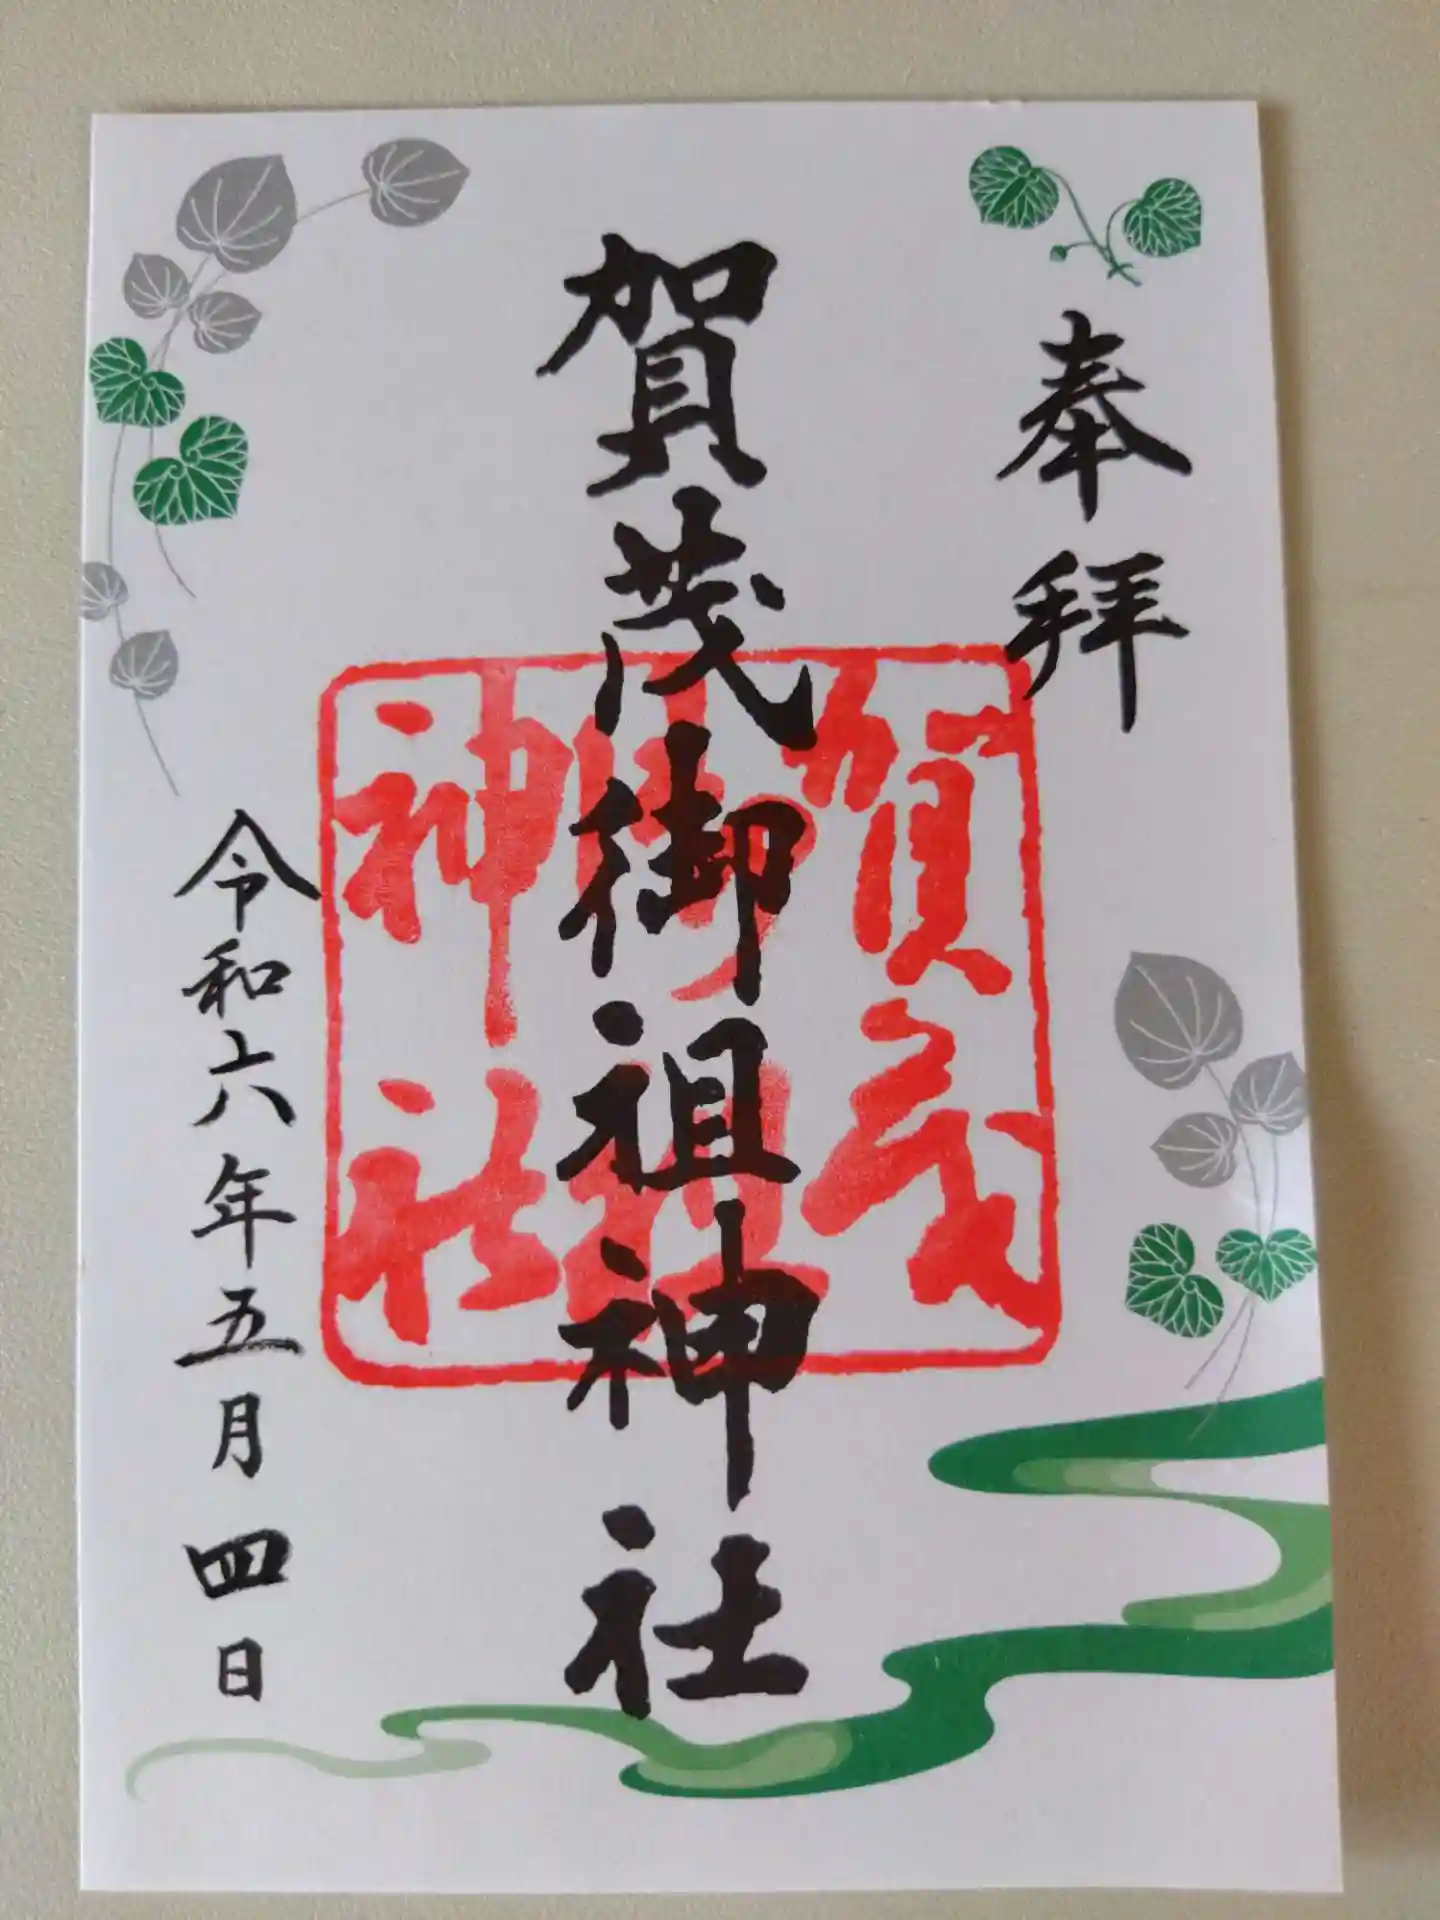 奉拝
賀茂御祖神社
賀茂
御祖
神社
令和六年五月四日